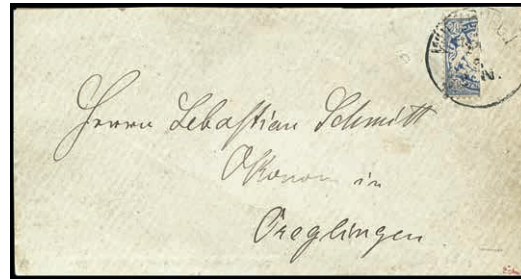 Herrn Sebastian Schmitt
Ökonom in
Creglingen